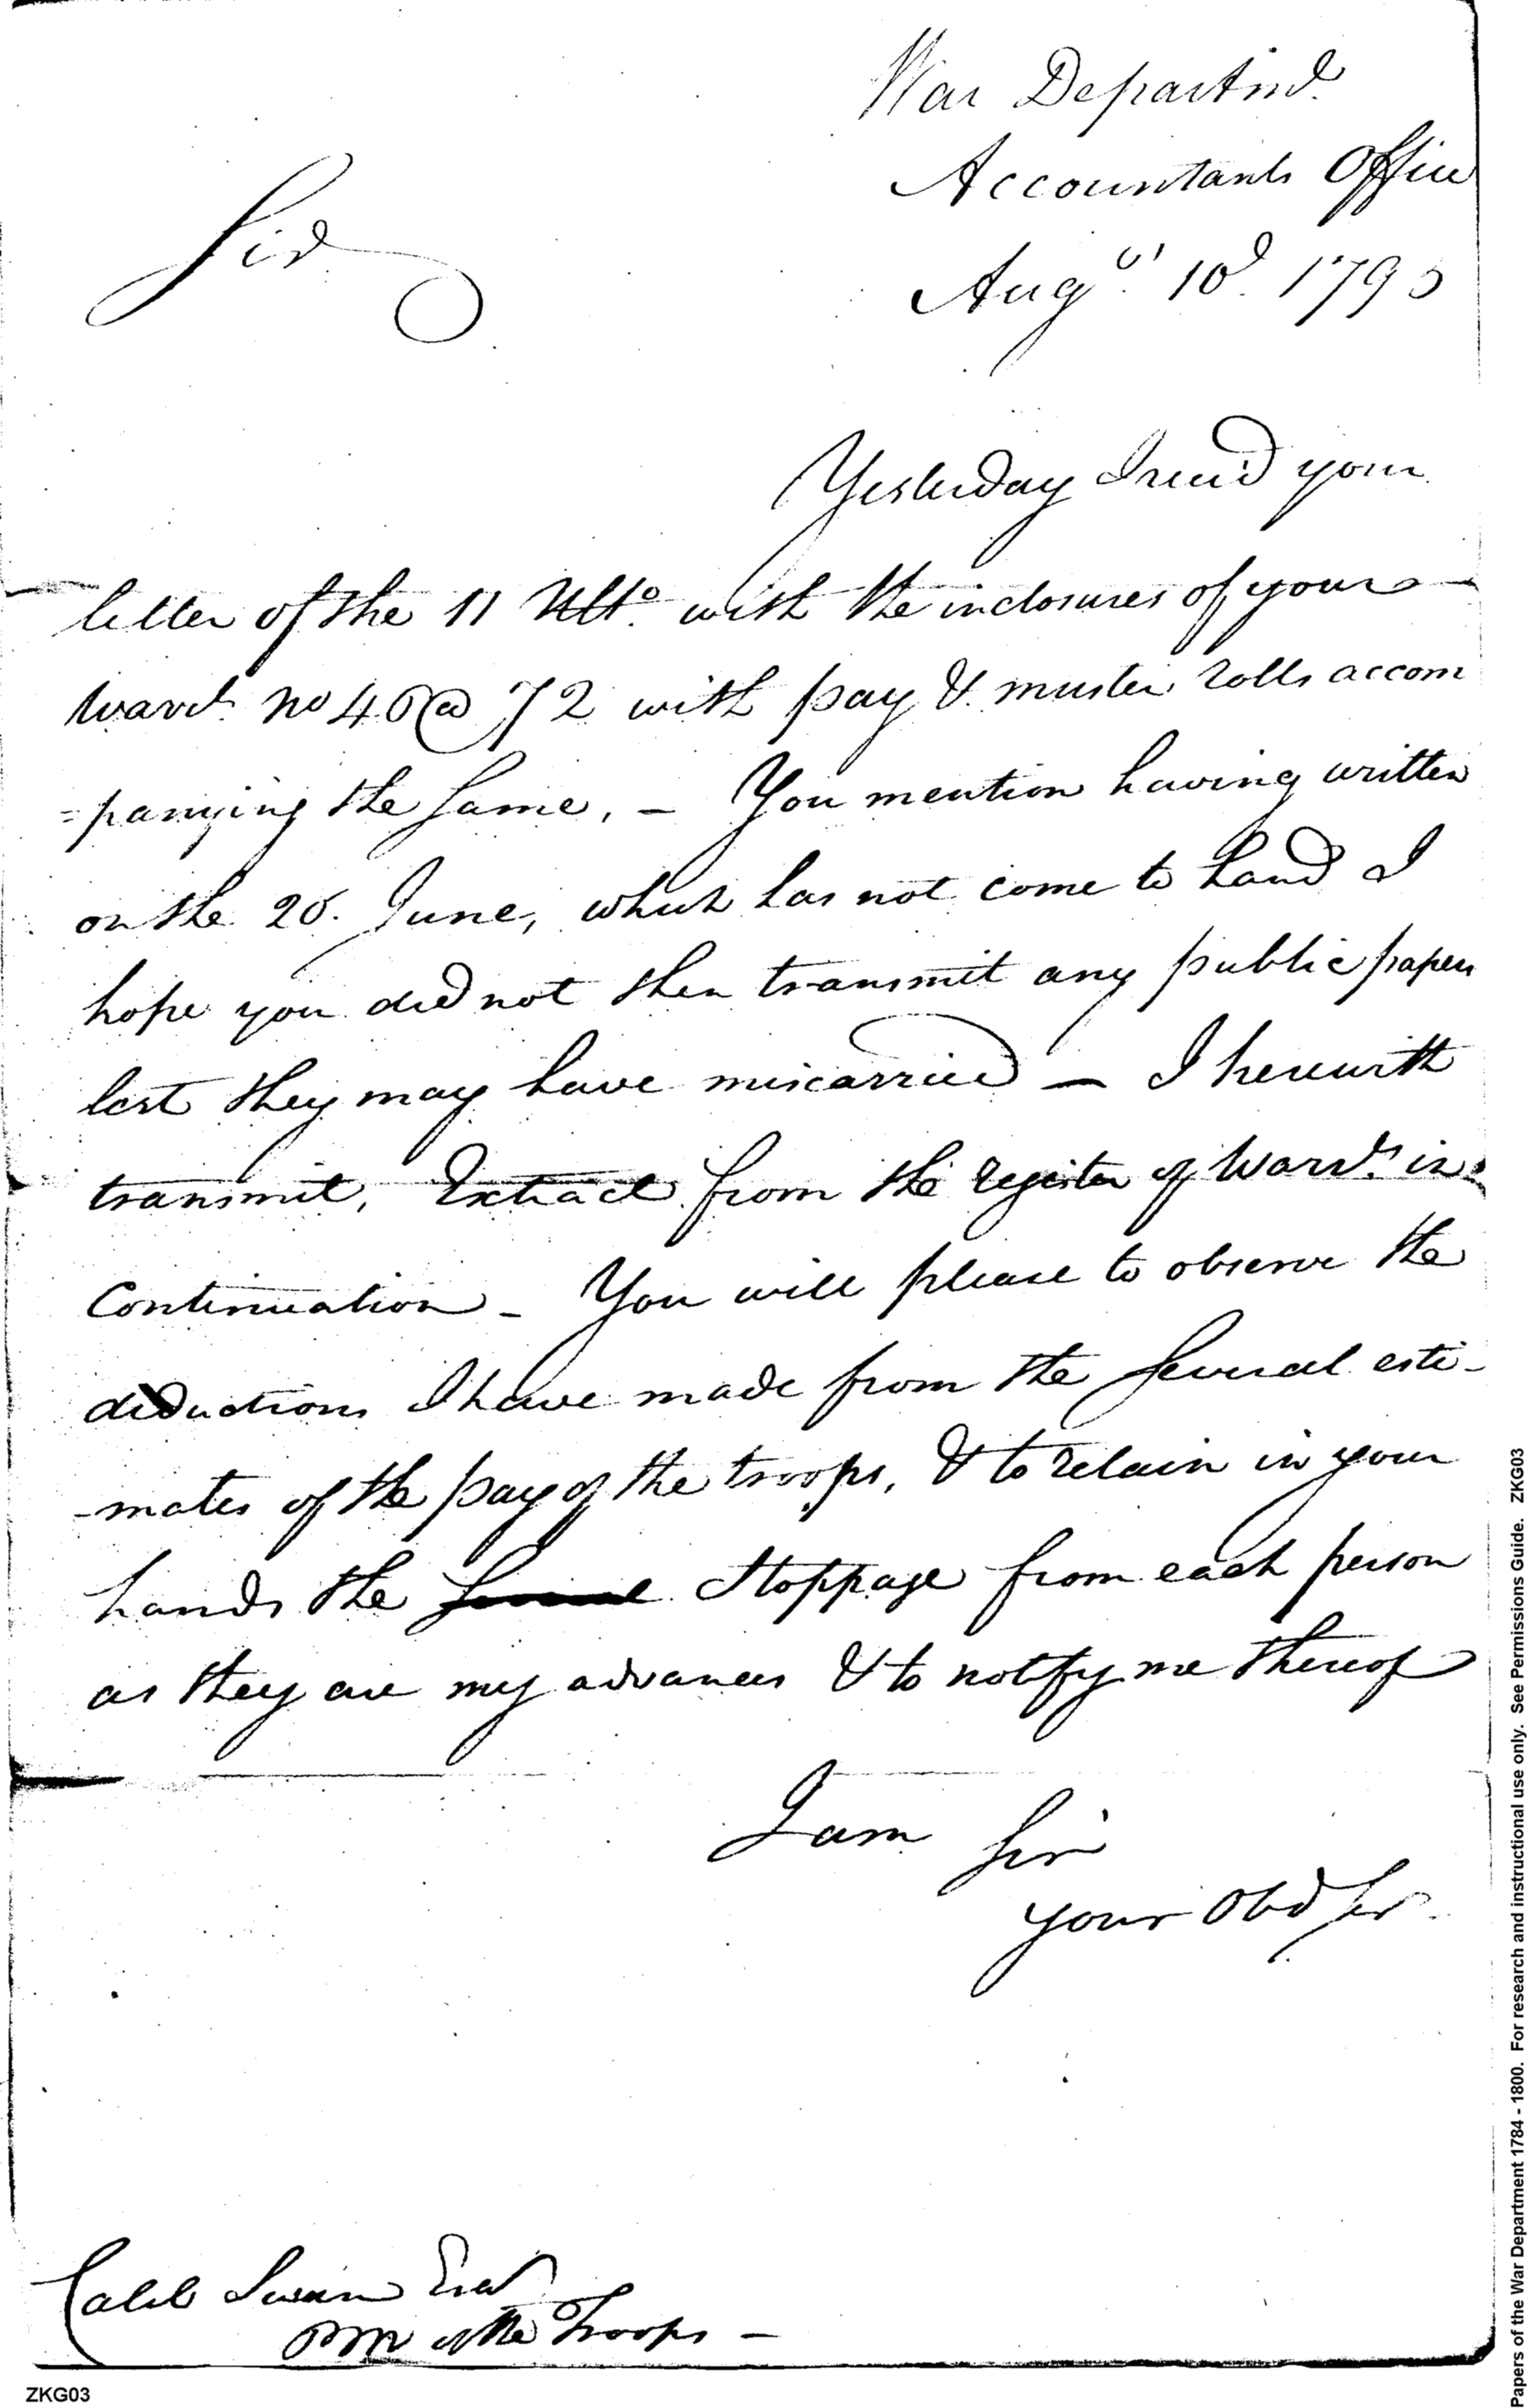 War Departmt.
Accountants Office
Augt. 10d. 1795
Sir
Yesterday I recd your
letter of the 11 Ulto. with the inclosures of your
Warrts. no 46 @ 72 with pay & muster rolls accom
=panying the same, — You mention having written
on the 26. June, which has not come to hand I
hope you did not then transmit any public papers
lest they may have miscarried — I herewith
transmit, Extract from the register of Warrts. in
Continuation — You will please to observe the
deductions I have made from the several esti-
-mates of the pay of the troops, & to retain in your
hands the several Stoppage from each person
as they are my advances & to notify me thereof
I am Sir
your Obd Sr.
Caleb Swan Esqr
PM of the Troops —
ZKG03
Papers of the War Department 1784 - 1800. For research and instructional use only. See Permissions Guide. ZKG03